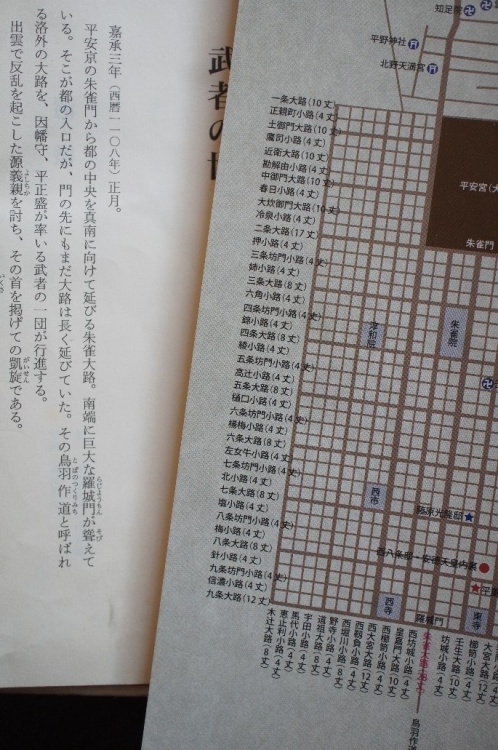 武者の
嘉承三年(西暦一一〇八年)正月。
平安京の朱雀門から都の中央を真南に向けて延びる朱雀大路。南端に巨大な羅城門が聳えて
いる。そこが都の入口だが、門の先にもまだ大路は長く延びていた。その鳥羽作道と呼ばれ
る洛外の大路を、因幡守、平正盛が率いる武者の一団が行進する。
出雲で反乱を起こした源義親を討ち、その首を掲げての凱旋である。
らじょうもん
そび
とばのつくりみち
よしちか
がいせん
いくさ
知足院
平野神社
北野天満宮
一条大路(10丈)
正親町小路(4丈)
土御門大路(10丈)
鷹司小路(4丈)
近衛大路(10丈)
勘解由小路(4丈)
中御門大路(10丈)
春日小路(4丈)
大炊御門大路(10丈)
冷泉小路(4丈)
二条大路(17丈)
押小路(4丈)
三条坊門小路(4丈)
姉小路(4丈)
三条大路(8丈)
六角小路(4丈)
四条坊門小路(4丈)
錦小路(4丈)
四条大路(8丈)
綾小路(4丈)
五条坊門小路(4丈)
高辻小路(4丈)
五条大路(8丈)
樋口小路(4丈)
六条坊門小路(4丈)
楊梅小路(4丈)
六条大路(8丈)
左女牛小路(4丈)
七条坊門小路(4丈)
北小路(4丈)
七条大路(8丈)
塩小路(4丈)
八条坊門小路(4丈)
梅小路(4丈)
八条大路(8丈)
針小路(4丈)
九条坊門小路(4丈)
信濃小路(4丈)
九条大路(12丈)
平安宮(大
朱雀門
淳和院
朱雀院
西市
藤原光隆邸
西八条邸・安徳天皇内裏
平
西寺
羅城門
東寺
木辻大路(8丈)
恵止利小路(4丈)
馬代小路(4丈)
宇田小路(4丈)
道祖大路(8丈)
野寺小路(4丈)
西堀川小路(8丈)
西靱負小路(4丈)
西大宮大路(12丈)
西櫛笥小路(4丈)
皇嘉門大路(10丈)
西坊城小路(4丈)
朱雀大路(28丈)
坊城小路(4丈)
壬生大路(10丈)
櫛笥小路(4丈)
大宮大路(12丈)
鳥羽作道